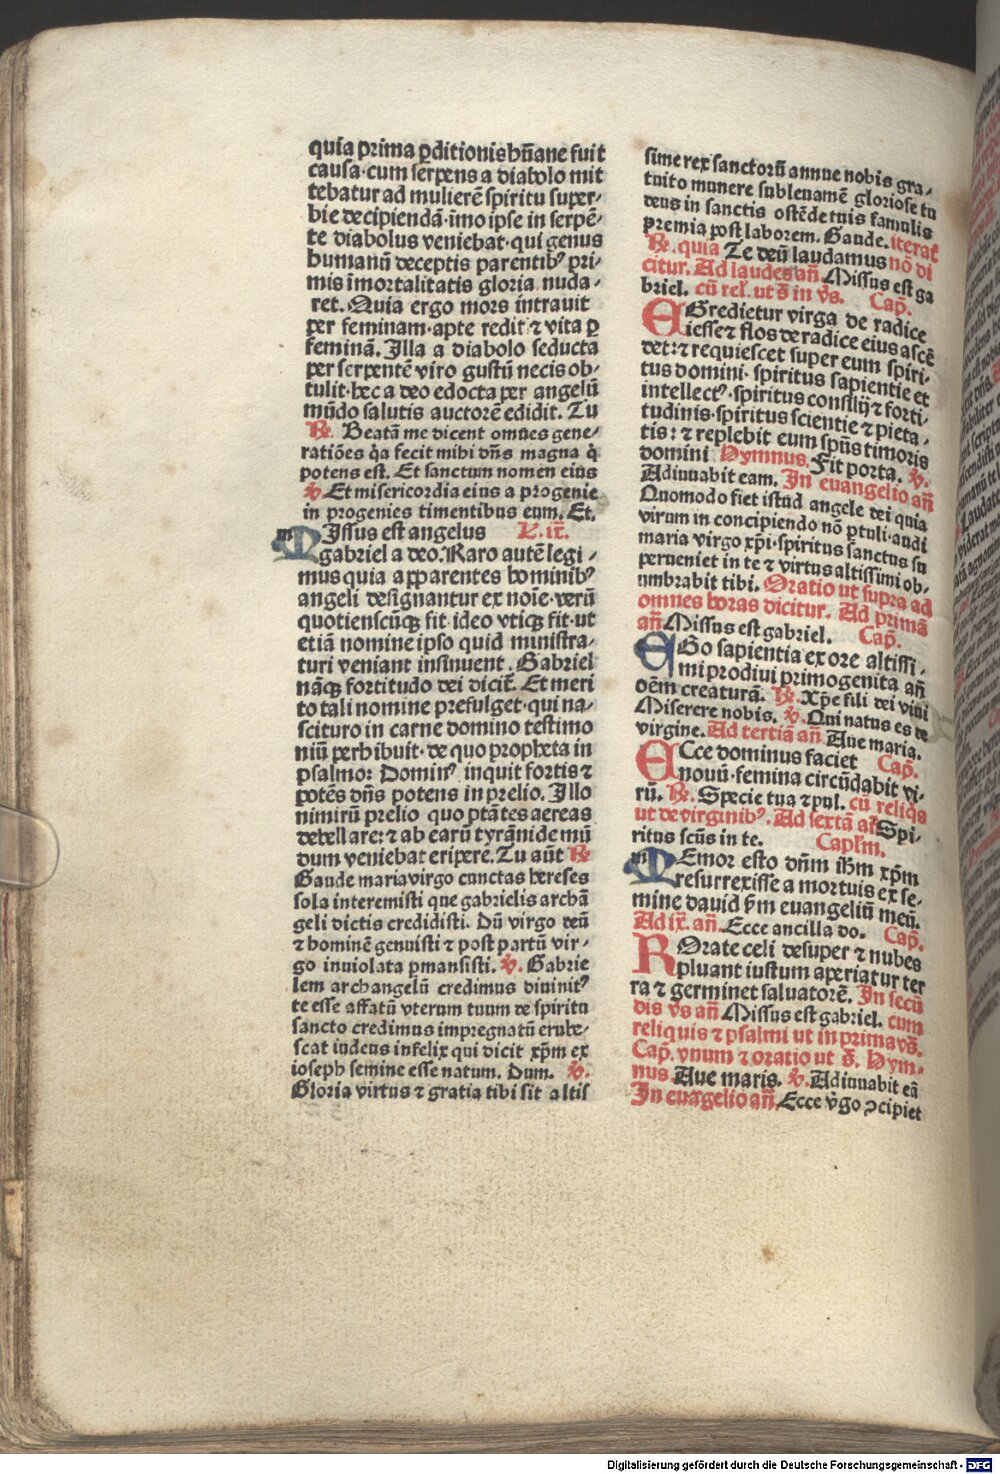 quia prima ꝑditionis hūane fuit
causa·cum serpens a diabolo mit
tebatur ad mulierē spiritu super⸗
bie decipiendā·imo ipse in serpē⸗
te diabolus veniebat·qui genus
humanū deceptis parentibꝰ pri⸗
mis īmortalitatis gloria nuda⸗
ret. Quia ergo mors intrauit
per feminam·apte redit ⁊ vita ꝑ
feminā. Illa a diabolo seducta
per serpentē viro gustū necis ob⸗
tulit·hec a deo edocta per angelū
mūdo salutis auctorē edidit. Tu
℞. Beatā me dicent omnes gene⸗
ratiōes q̄a fecit mihi dn̄s magna q̇
potens est. Et sanctum nomen eius
℣. Et misericordia eius a progenie
in progenies timentibus eum. Et.
MIssus est angelus L. ix̄.
gabriel a deo. Raro autē legi⸗
mus quia apparentes hominibꝰ
angeli designantur ex noīe·verū
quotienscūqꝫ fit ideo vtiqꝫ fit·ut
etiā nomine ipso quid ministra⸗
turi veniant insinuent. Gabriel
nāqꝫ fortitudo dei dicit̄. Et meri
to tali nomine prefulget·qui na⸗
scituro in carne domino testimo
niū perhibuit·de quo propheta in
psalmo: Dominꝰ inquit fortis ⁊
potēs dn̄s potens in prelio. Illo
nimirū prelio quo ptātes aereas
debellare: ⁊ ab earū tyrānide mū
dum veniebat eripere. Tu aūt ℞
Gaude maria virgo cunctas hereses
sola interemisti que gabrielis archā
geli dictis credidisti. Dū virgo deū
⁊ hominē genuisti ⁊ post partū vir⸗
go inuiolata ꝑmansisti. ℣. Gabrie
lem archangelū credimus diuinitꝰ
te esse affatū vterum tuum de spiritu
sancto credimus impregnatū erube⸗
scat iudeus infelix qui dicit xp̄m ex
ioseph semine esse natum. Dum. ℣.
Gloria virtus ⁊ gratia tibi sit altis
sime rex sanctorū annue nobis gra⸗
tuito munere subleuamē gloriose tu
deus in sanctis ostēde tuis famulis
premia post laborem. Gaude. iterat̄
℞. quia Te deū laudamus nō di
citur. Ad laudes an̄ Missus est ga
briel. cū rel̄. ut s̄ in v̄s. Cap̄.
EGredietur virga de radice
iesse ⁊ flos de radice eius ascē
det: ⁊ requiescet super eum spiri⸗
tus domini·spiritus sapientie et
intellectꝰ·spiritus consilij ⁊ forti⸗
tudinis·spiritus scientie ⁊ pieta⸗
tis: ⁊ replebit eum sp̄us timoris
domini Hymnus. Fit porta. ℣.
Adiuuabit eam. In euangelio an̄
Quomodo fiet istud angele dei quia
virum in concipiendo nō ꝑtuli·audi
maria virgo xp̄i·spiritus sanctus su
perueniet in te ⁊ virtus altissimi ob⸗
umbrabit tibi. Oratio ut supra ad
omnes horas dicitur. Ad primā
an̄ Missus est gabriel. Cap̄.
EGo sapientia ex ore altissi⸗
mi prodiui primogenita an̄
oēm creaturā. ℞. Xp̄e fili dei viui
Miserere nobis. ℣. Qui natus es de
virgine. Ad tertiā an̄ Aue maria.
ECce dominus faciet Cap̄.
nouū·femina circūdabit vi⸗
rū. ℞. Specie tua ⁊ pul. cū reliqs
ut de virginibꝰ. Ad sextā an̄ Spi⸗
ritus scūs in te. Capl̄m.
MEmor esto dn̄m ih̄m xp̄m
resurrexisse a mortuis ex se⸗
mine dauid ẜm euangeliū meū.
Ad ix̄. an̄. Ecce ancilla do. Cap̄.
ROrate celi desuper ⁊ nubes
pluant iustum aperiatur ter
ra ⁊ germinet saluatorē. In secū
dis v̄s an̄ Missus est gabriel. cum
reliquis ⁊ psalmi ut in primavs̄.
Cap̄. vnum ⁊ oratio ut s̄. Hym⸗
nus Aue maris. ℣. Adiuuabit eā
In euāgelio an̄. Ecce v̇go ꝯcipiet
Digitalisierung gefördert durch die Deutsche Forschungsgemeinschaft - DFG